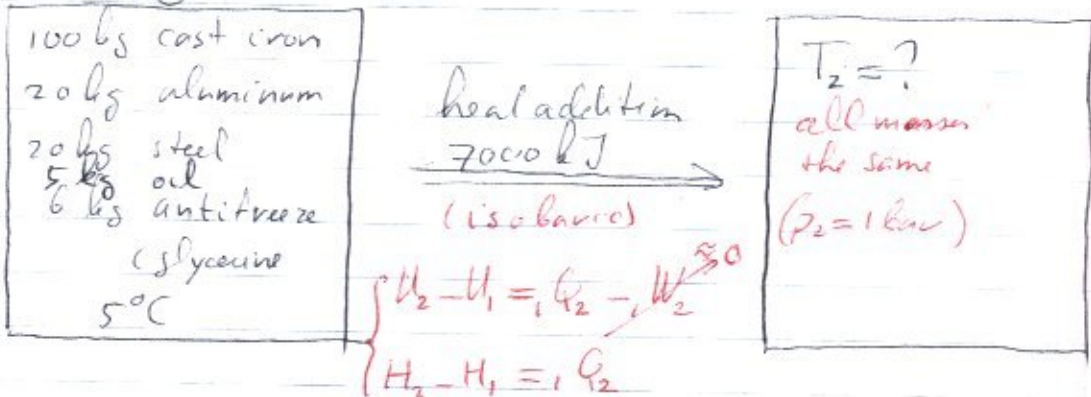 100 kg cast iron
20 kg aluminum
20 kg steel
5 kg oil
6 kg antifreeze
(glycerine
5°C
heat addition
7000 kJ
(isobaric)
U₂ - U₁ = ₁Q₂ - ₁W₂ ≈0
H₂ - H₁ = ₁Q₂
T₂ = ?
all masses
the same
(p₂ = 1 bar)